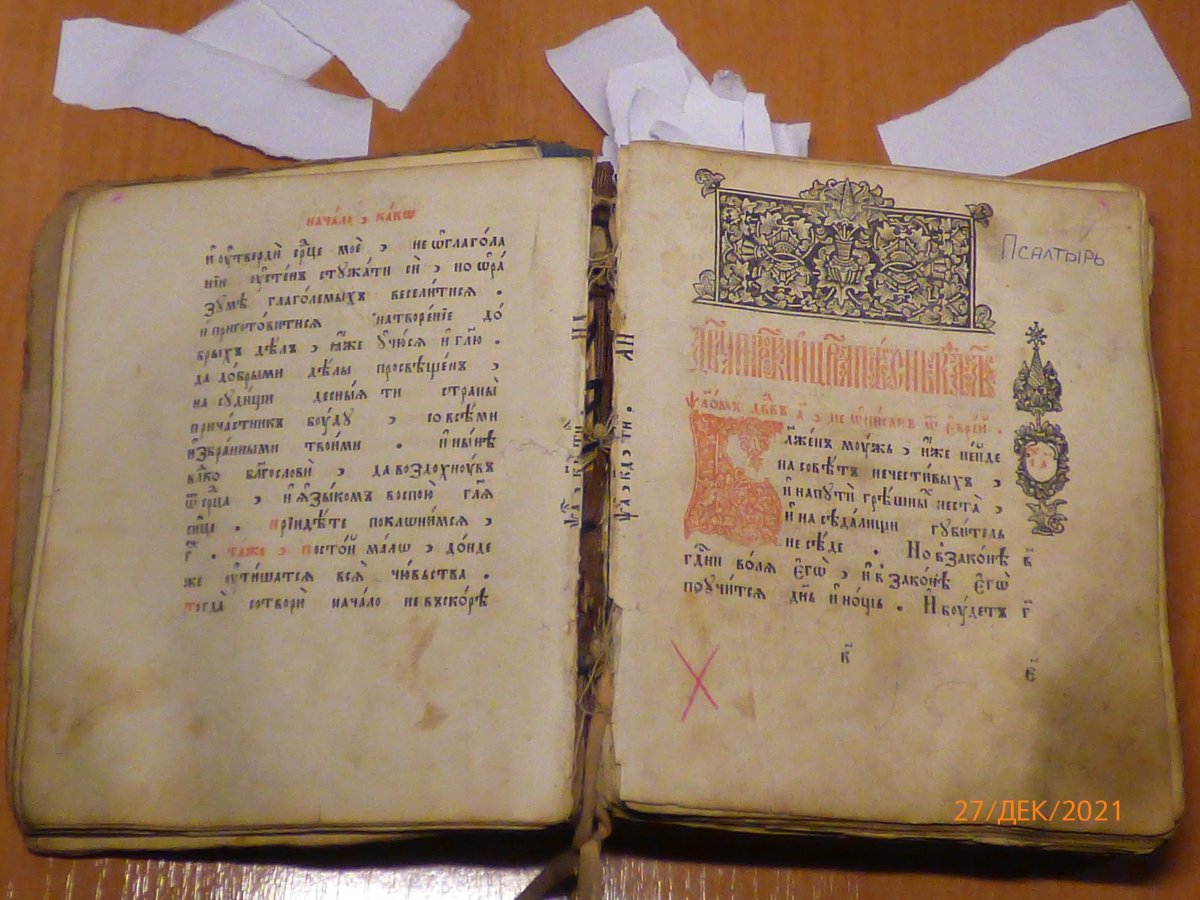 нача́ло , ка́кѡ
и҆ ᲂу҆твердѝ се́рдце моѐ , не ѡ҆глаго́ла
нїи ᲂу҆сте́нъ стужа́ти сѝ , но ѿ ра́
зꙋмѣ̀ глаго́лемыхъ весели́тисѧ .
и҆ пригото́витисѧ на творе́нїе до́
брыхъ дѣ́лъ , ꙗ҆́же ᲂу҆чю́сѧ и҆ гл҃ю .
да до́брыми дѣ́лы просвѣще́нъ ,
на сꙋди́щи десны́ѧ ти страны̀
прича́стникъ бꙋ́дꙋ , со всѣ́ми
и҆збра́нными твои́ми . и҆ ны́нѣ
влⷣко блгⷭ҇овѝ , да воздохнꙋ́въ
ѿ се́рдца , и҆ ѧ҆зы́комъ воспою̀ гл҃ѧ
си́це . прїидѣ́те поклони́мсѧ ,
г҃ . та́же , посто́й ма́лѡ , до́нде
же ᲂу҆ти́шатсѧ всѧ̀ чю́вьства .
тогда̀ сотворѝ нача́ло не въско́рѣ
Псалтырь
ѱало́мъ дв҃дꙋ а҃ , не ѡ҆пи́санъ ѿ є҆вре́й .
Бл҃же́нъ мꙋ́жь , и҆́же не и҆́де
на совѣ́тъ нечести́выхъ ,
и҆ на пꙋтѝ грѣ́шныⷯ не ста̀ ,
и҆ на сѣда́лищи гꙋби́тель
не сѣ́де . Но в̾ зако́нѣ в҃
гдⷭ҇ни во́лѧ є҆гѡ̀ , и҆ в̾ зако́нѣ є҆гѡ̀
поꙋчи́тсѧ дн҃ь и҆ но́щь . И҆ бꙋ́детъ г҃
в҃
є҃
27/ДЕК/2021